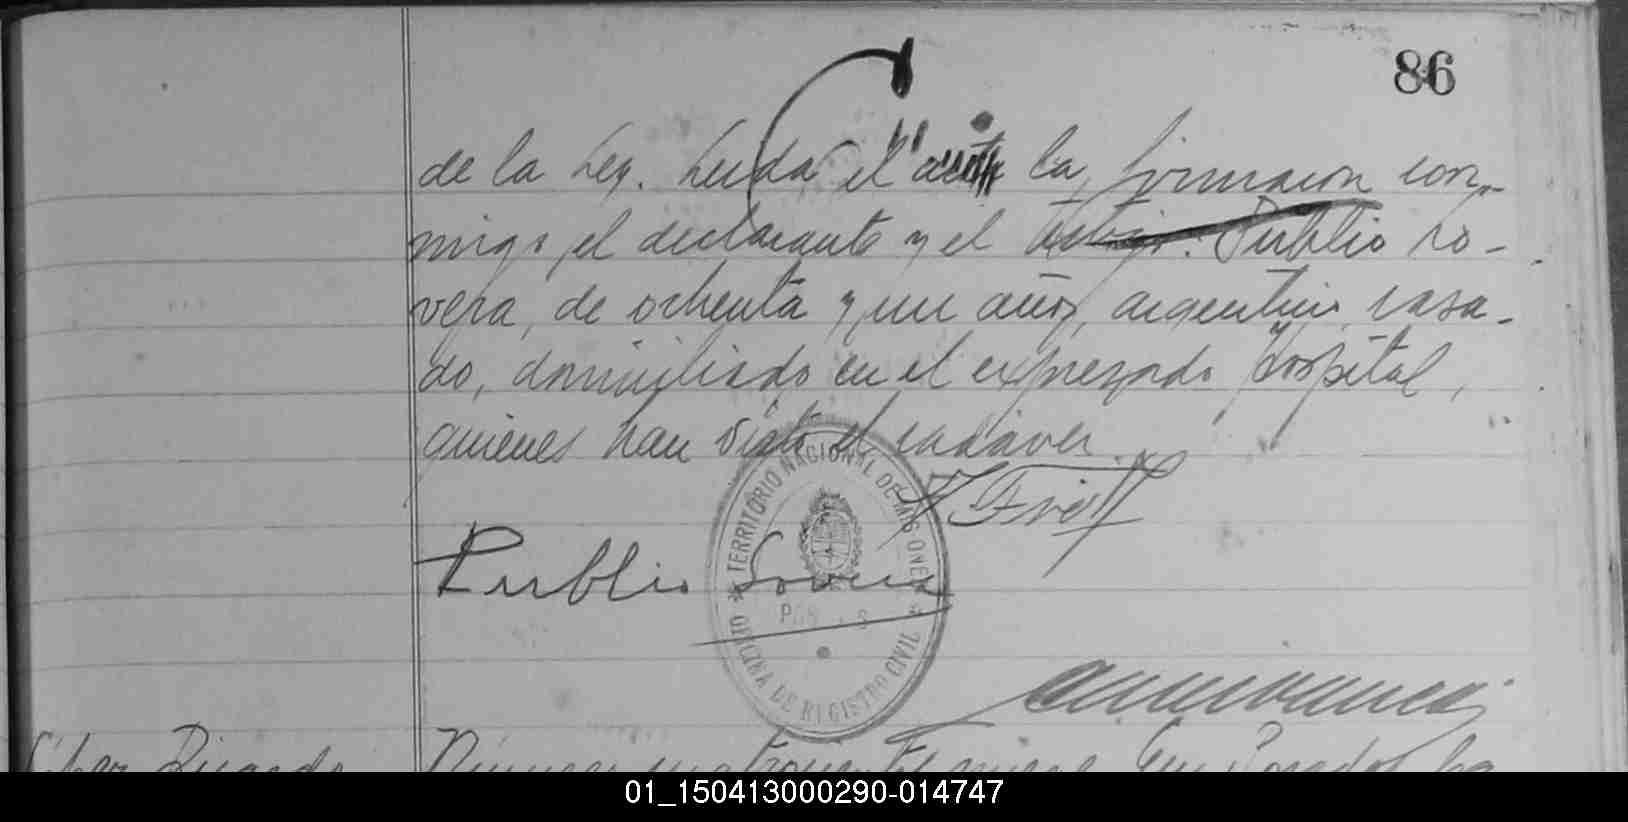 86
de la Ley. Leida el acta la, firmaron con-
migo, el declarante y el testigo: Publio Lo-
vera, de ochenta y un años, argentino, casa-
do, domiciliado en el expresado Hospital,
quienes han visto el cadaver.
Publio Lovera
TERRITORIO NACIONAL DE MISIONES
OFICINA DE REGISTRO CIVIL
Ricardo
Número
En Posadas, Ca
01_150413000290-014747